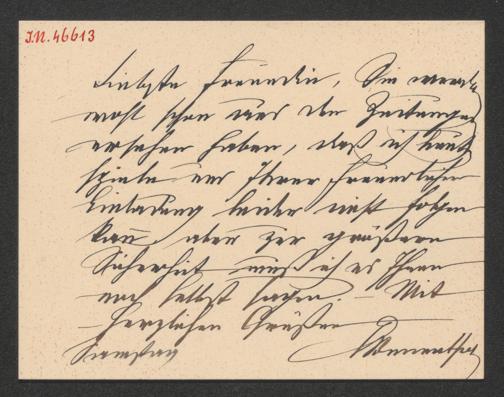 I.N. 46613
Liebste Freundin, Sie werden
wohl schon aus den Zeitungen
ersehen haben, daß ich heute
spiele und Ihrer freundlichen
Einladung leider nicht folgen
kann, aber zur größeren
Sicherheit muß ich es Ihnen
noch selbst sagen. – Mit
herzlichen Grüßen
Samstag